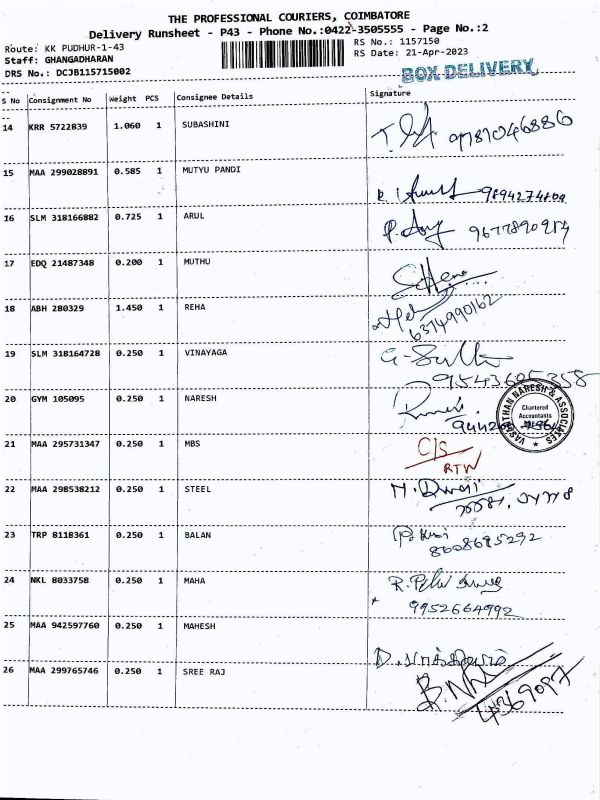 THE PROFESSIONAL COURIERS, COIMBATORE
Delivery Runsheet - P43 - Phone No.:0422-3505555 - Page No.:2
Route: KK PUDHUR-1-43
RS No.: 1157150
Staff: GHANGADHARAN
RS Date: 21-Apr-2023
DRS No.: DCJB115715002
BOX DELIVERY
S No Consignment No Weight PCS Consignee Details Signature
14 KRR 5722839 1.060 1 SUBASHINI
15 MAA 299028891 0.585 1 MUTYU PANDI
9894274804
16 SLM 318166882 0.725 1 ARUL
9677890984
17 EDQ 21487348 0.200 1 MUTHU
18 ABH 280329 1.450 1 REHA
6374990162
19 SLM 318164728 0.250 1 VINAYAGA
9543605358
20 GYM 105095 0.250 1 NARESH
VASANTHAN NARESH & ASSOCIATES
Chartered
Accountants
21 MAA 295731347 0.250 1 MBS
C/S
RTW
22 MAA 298538212 0.250 1 STEEL
23 TRP 8118361 0.250 1 BALAN
8608695292
24 NKL 8033758 0.250 1 MAHA
9952664992
25 MAA 942597760 0.250 1 MAHESH
26 MAA 299765746 0.250 1 SREE RAJ